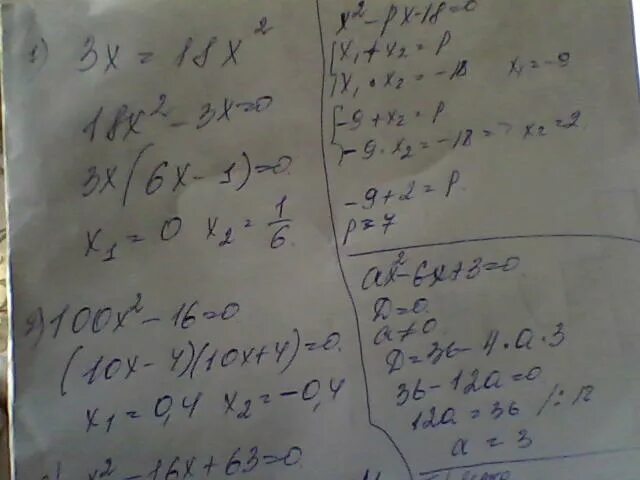 1) 3x = 18x²
18x² - 3x = 0
3x(6x - 1) = 0
x₁ = 0 x₂ = 1/6
2) 100x² - 16 = 0
(10x - 4)(10x + 4) = 0
x₁ = 0,4 x₂ = -0,4
x² - 16x + 63 = 0
x² - px - 18 = 0
{x₁ + x₂ = p
{x₁ · x₂ = -18 x₁ = -9
{-9 + x₂ = p
{-9 · x₂ = -18 => x₂ = 2
-9 + 2 = p
p = 7
ax² - 6x + 3 = 0
D = 0
a ≠ 0
D = 36 - 4 · a · 3
36 - 12a = 0
12a = 36 /: 12
a = 3